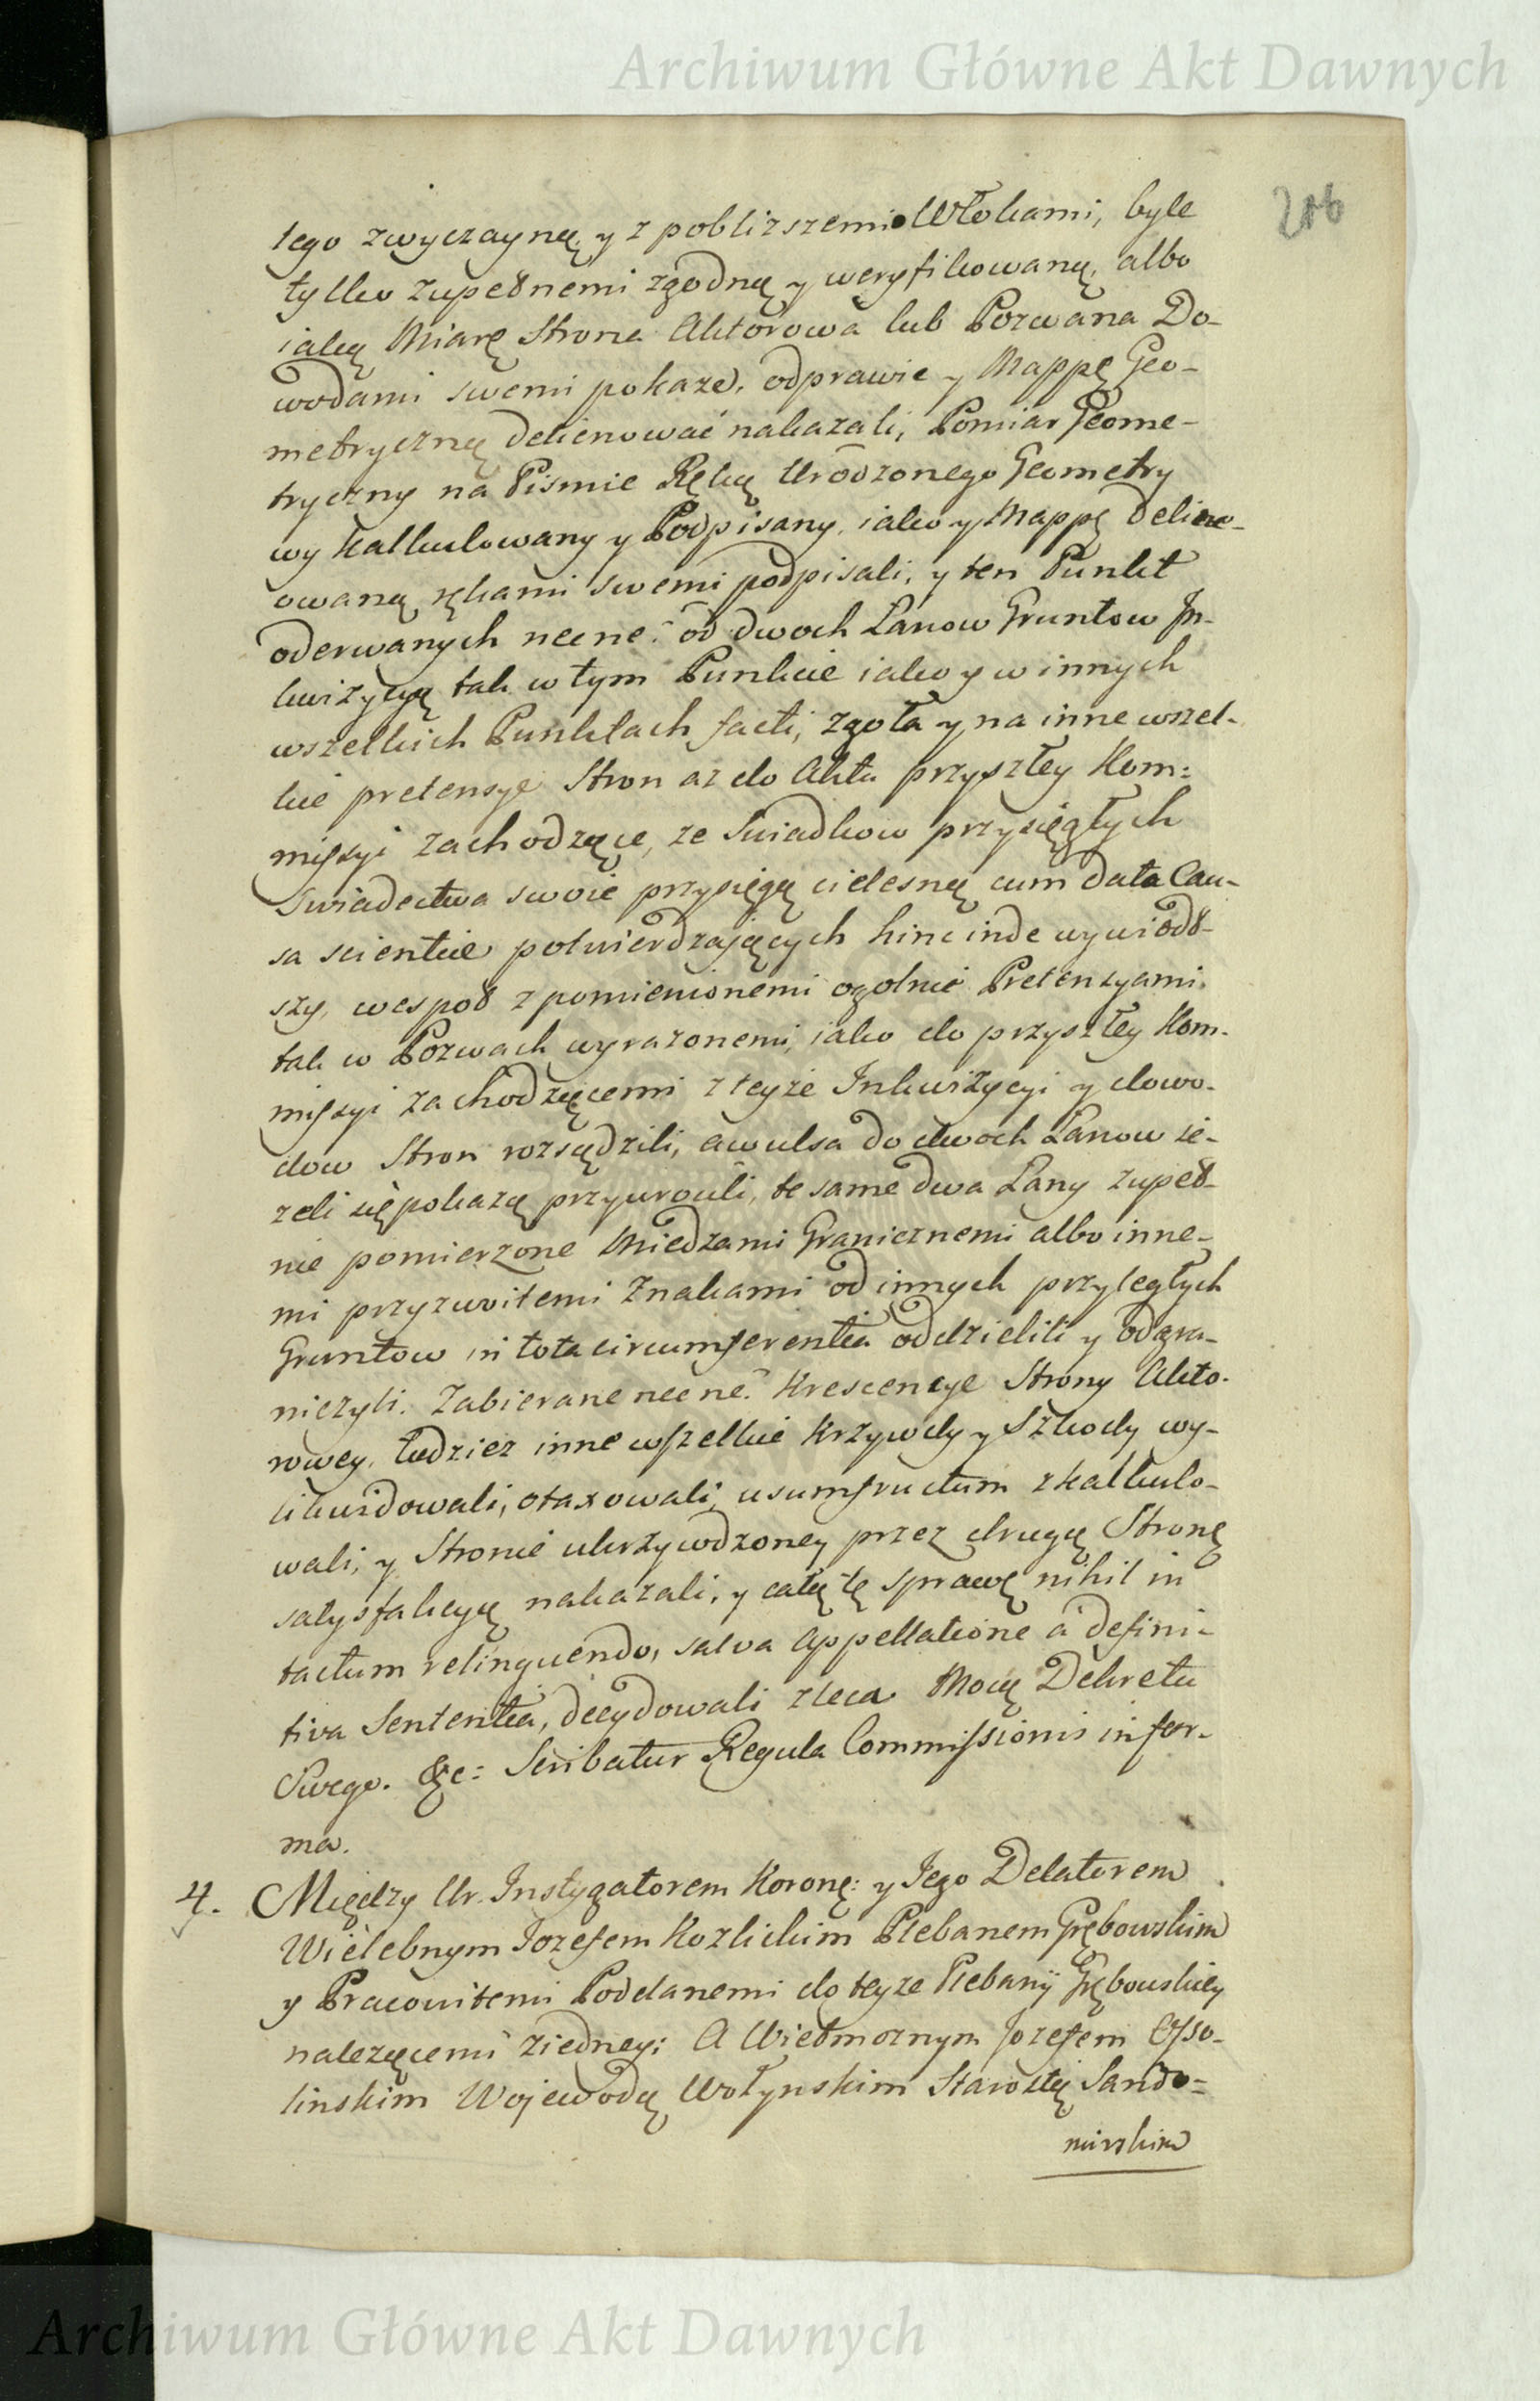 Archiwum Główne Akt Dawnych
206
tego zwyczayną, y z poblizszemi Włokami, byle
tylko zupełnemi zgodną y weryfikowaną, albo
iaką Miarę Strona Aktorowa lub Pozwana Do-
wodami swemi pokaze, odprawie y Mappę Geo-
metryczną delienować nakazali, Pomiar Geome-
tryczny na Pismie Ręką Urodzonego Geometry
wykalkulowany y Podpisany, iako y Mappę delino-
owaną rękami swemi podpisali, y ten Punkt
oderwanych necne? od dwoch Łanow Gruntow In-
kwizycyą tak w tym Punkcie iako y w innych
wszelkich Punktach facti, zgoła y na inne wszel-
kie pretensye Stron az do Aktu przyszłey Kom:
missyi zachodzące, ze Swiadkow przysięgłych
Swiadectwa swoie przysięgą cielesną cum data Cau-
sa scientiæ potwierdzaiących hinc inde wywiodł-
szy, wespoł z pomienionemi ogolnie Pretensyami
tak w Pozwach wyrazonemi, iako do przyszłey Kom-
missyi zachodzącemi z teyże Inkwizycyi y dowo-
dow Stron rozsądzili, avulsa do dwoch Łanow ie-
zeli się pokazą przywrocili, te same dwa Łany zupeł-
nie pomierzone Miedzami Granicznemi albo inne-
mi przyzwoitemi Znakami od innych przyległych
Gruntow in tota circumferentia oddzielili y odgra-
niczyli. Zabierane necne? Krescencye Strony Akto-
rowey, tudziez inne wszelkie Krzywdy y Szkody wy-
likwidowali, otaxowali, usumfructum zkalkulo-
wali, y Stronie ukrzywdzoney przez drugą Stronę
satysfakcyą nakazali, y całą tę sprawę nihil in
tactum relinquendo, salva Appellatione a defini-
tiva Sententia, decydowali zleca Mocą Dekretu
Swego. &c: Scribatur Regula Commissionis in for-
ma.
4. Między Ur. Instygatorem Koronę: y Jego Delatorem
Wielebnym Jozefem Kozlickim Plebanem Grębowskim
y Pracowitemi Poddanemi do teyze Plebanij Grębowskiey
nalezącemi ziedney; A Wielmoznym Jozefem Osso-
linskim Wojewodą Wołynskim Starostą Sando=
mirskim
Archiwum Główne Akt Dawnych